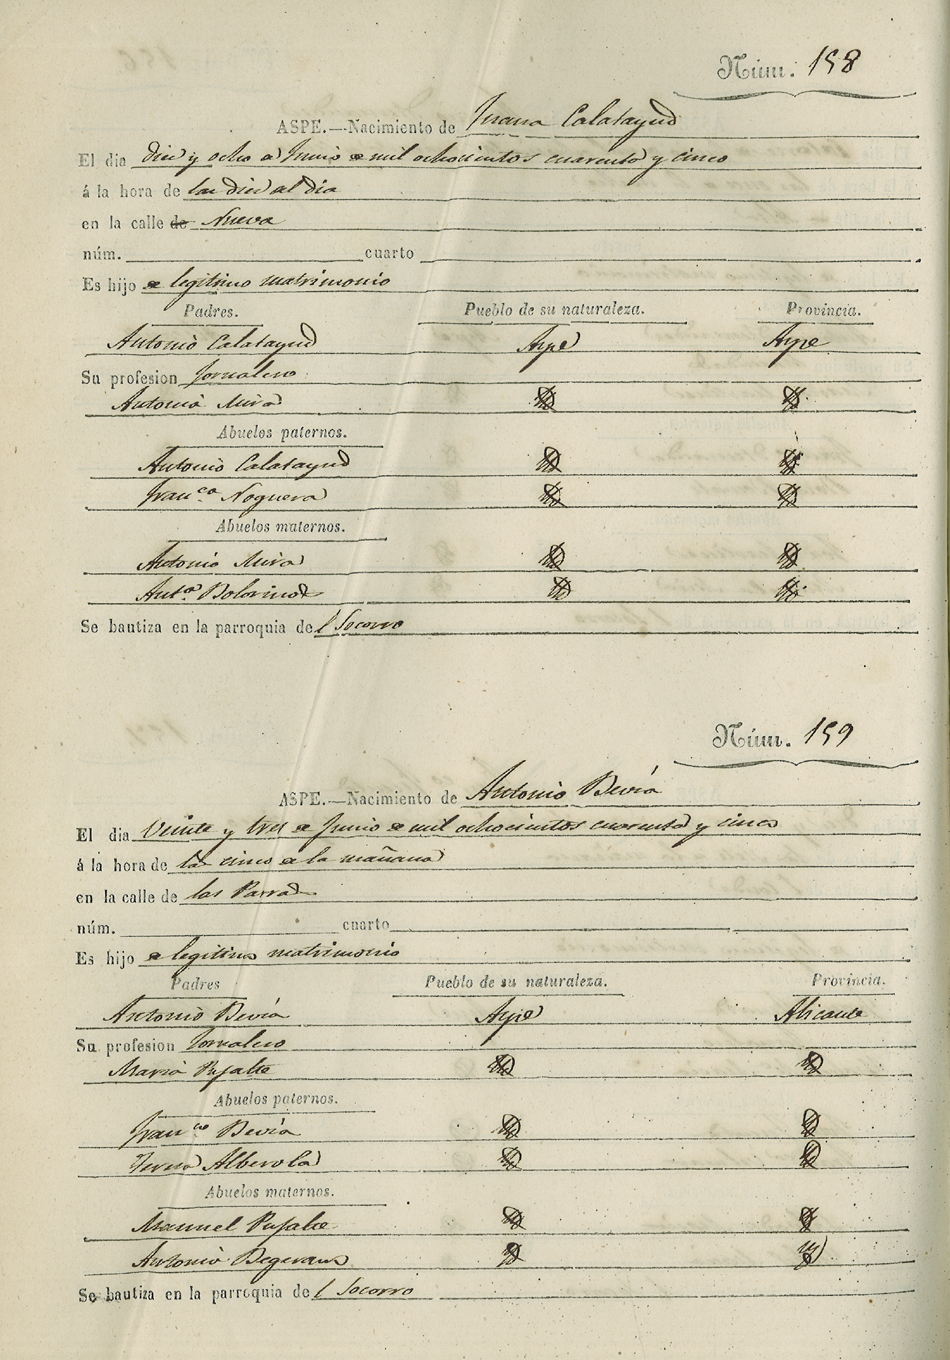 Núm. 158
ASPE.—Nacimiento de Juana Calatayud
El dia diez y ocho de Junio de mil ochocientos cuarenta y cinco
á la hora de las diez del dia
en la calle de Nueva
núm. cuarto
Es hijo de legitimo matrimonio
Padres. Pueblo de su naturaleza. Provincia.
Antonio Calatayud Aspe Aspe
Su profesion Jornalero
Antonia Mira
Abuelos paternos.
Antonio Calatayud
Franca Noguera
Abuelos maternos.
Antonio Mira
Anta
Se bautiza en la parroquia del Socorro
Núm. 159
ASPE.—Nacimiento de Antonio Bevía
El dia veinte y tres de Junio de mil ochocientos cuarenta y cinco
á la hora de las cinco de la mañana
en la calle de las Parras
núm. cuarto
Es hijo de legitimo matrimonio
Padres Pueblo de su naturaleza. Provincia.
Antonio Bevía Aspe Alicante
Su profesion Jornalero
Maria Pujalte
Abuelos paternos.
Franco Bevía
Teresa Alberola
Abuelos maternos.
Manuel Pujalte
Antonia
Se bautiza en la parroquia del Socorro